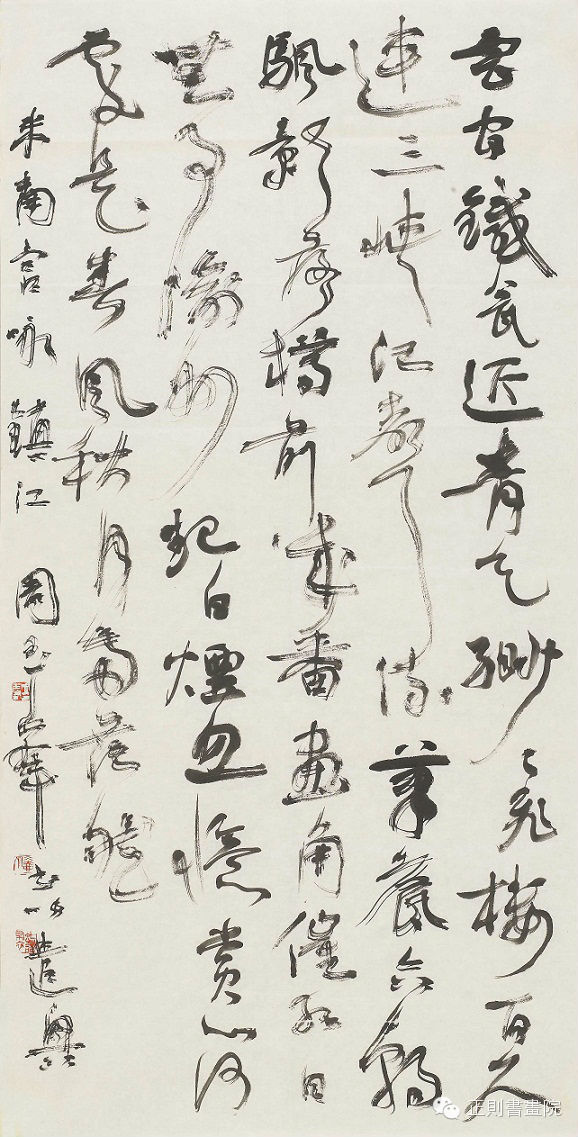 雲間鐵瓮近青天縹緲飛樓百尺
連三峽江聲流筆底六朝
颿影落樽前幾番畫角催紅日
無事滄州起白煙忽憶賞心何
處是春風秋月兩茫然
米南宮詠鎮江 周玉 書以遣興
正則書畫院